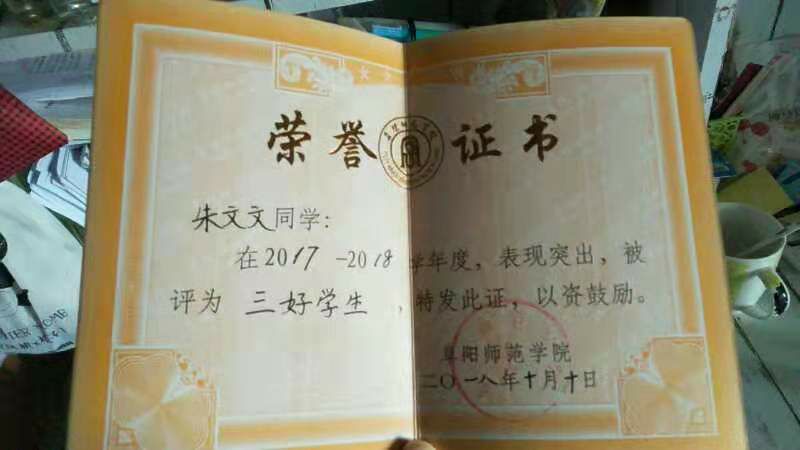 荣誉证书
朱文文同学:
在2017-2018学年度,表现突出,被
评为三好学生,特发此证,以资鼓励。
阜阳师范学院
二〇一八年十月十日